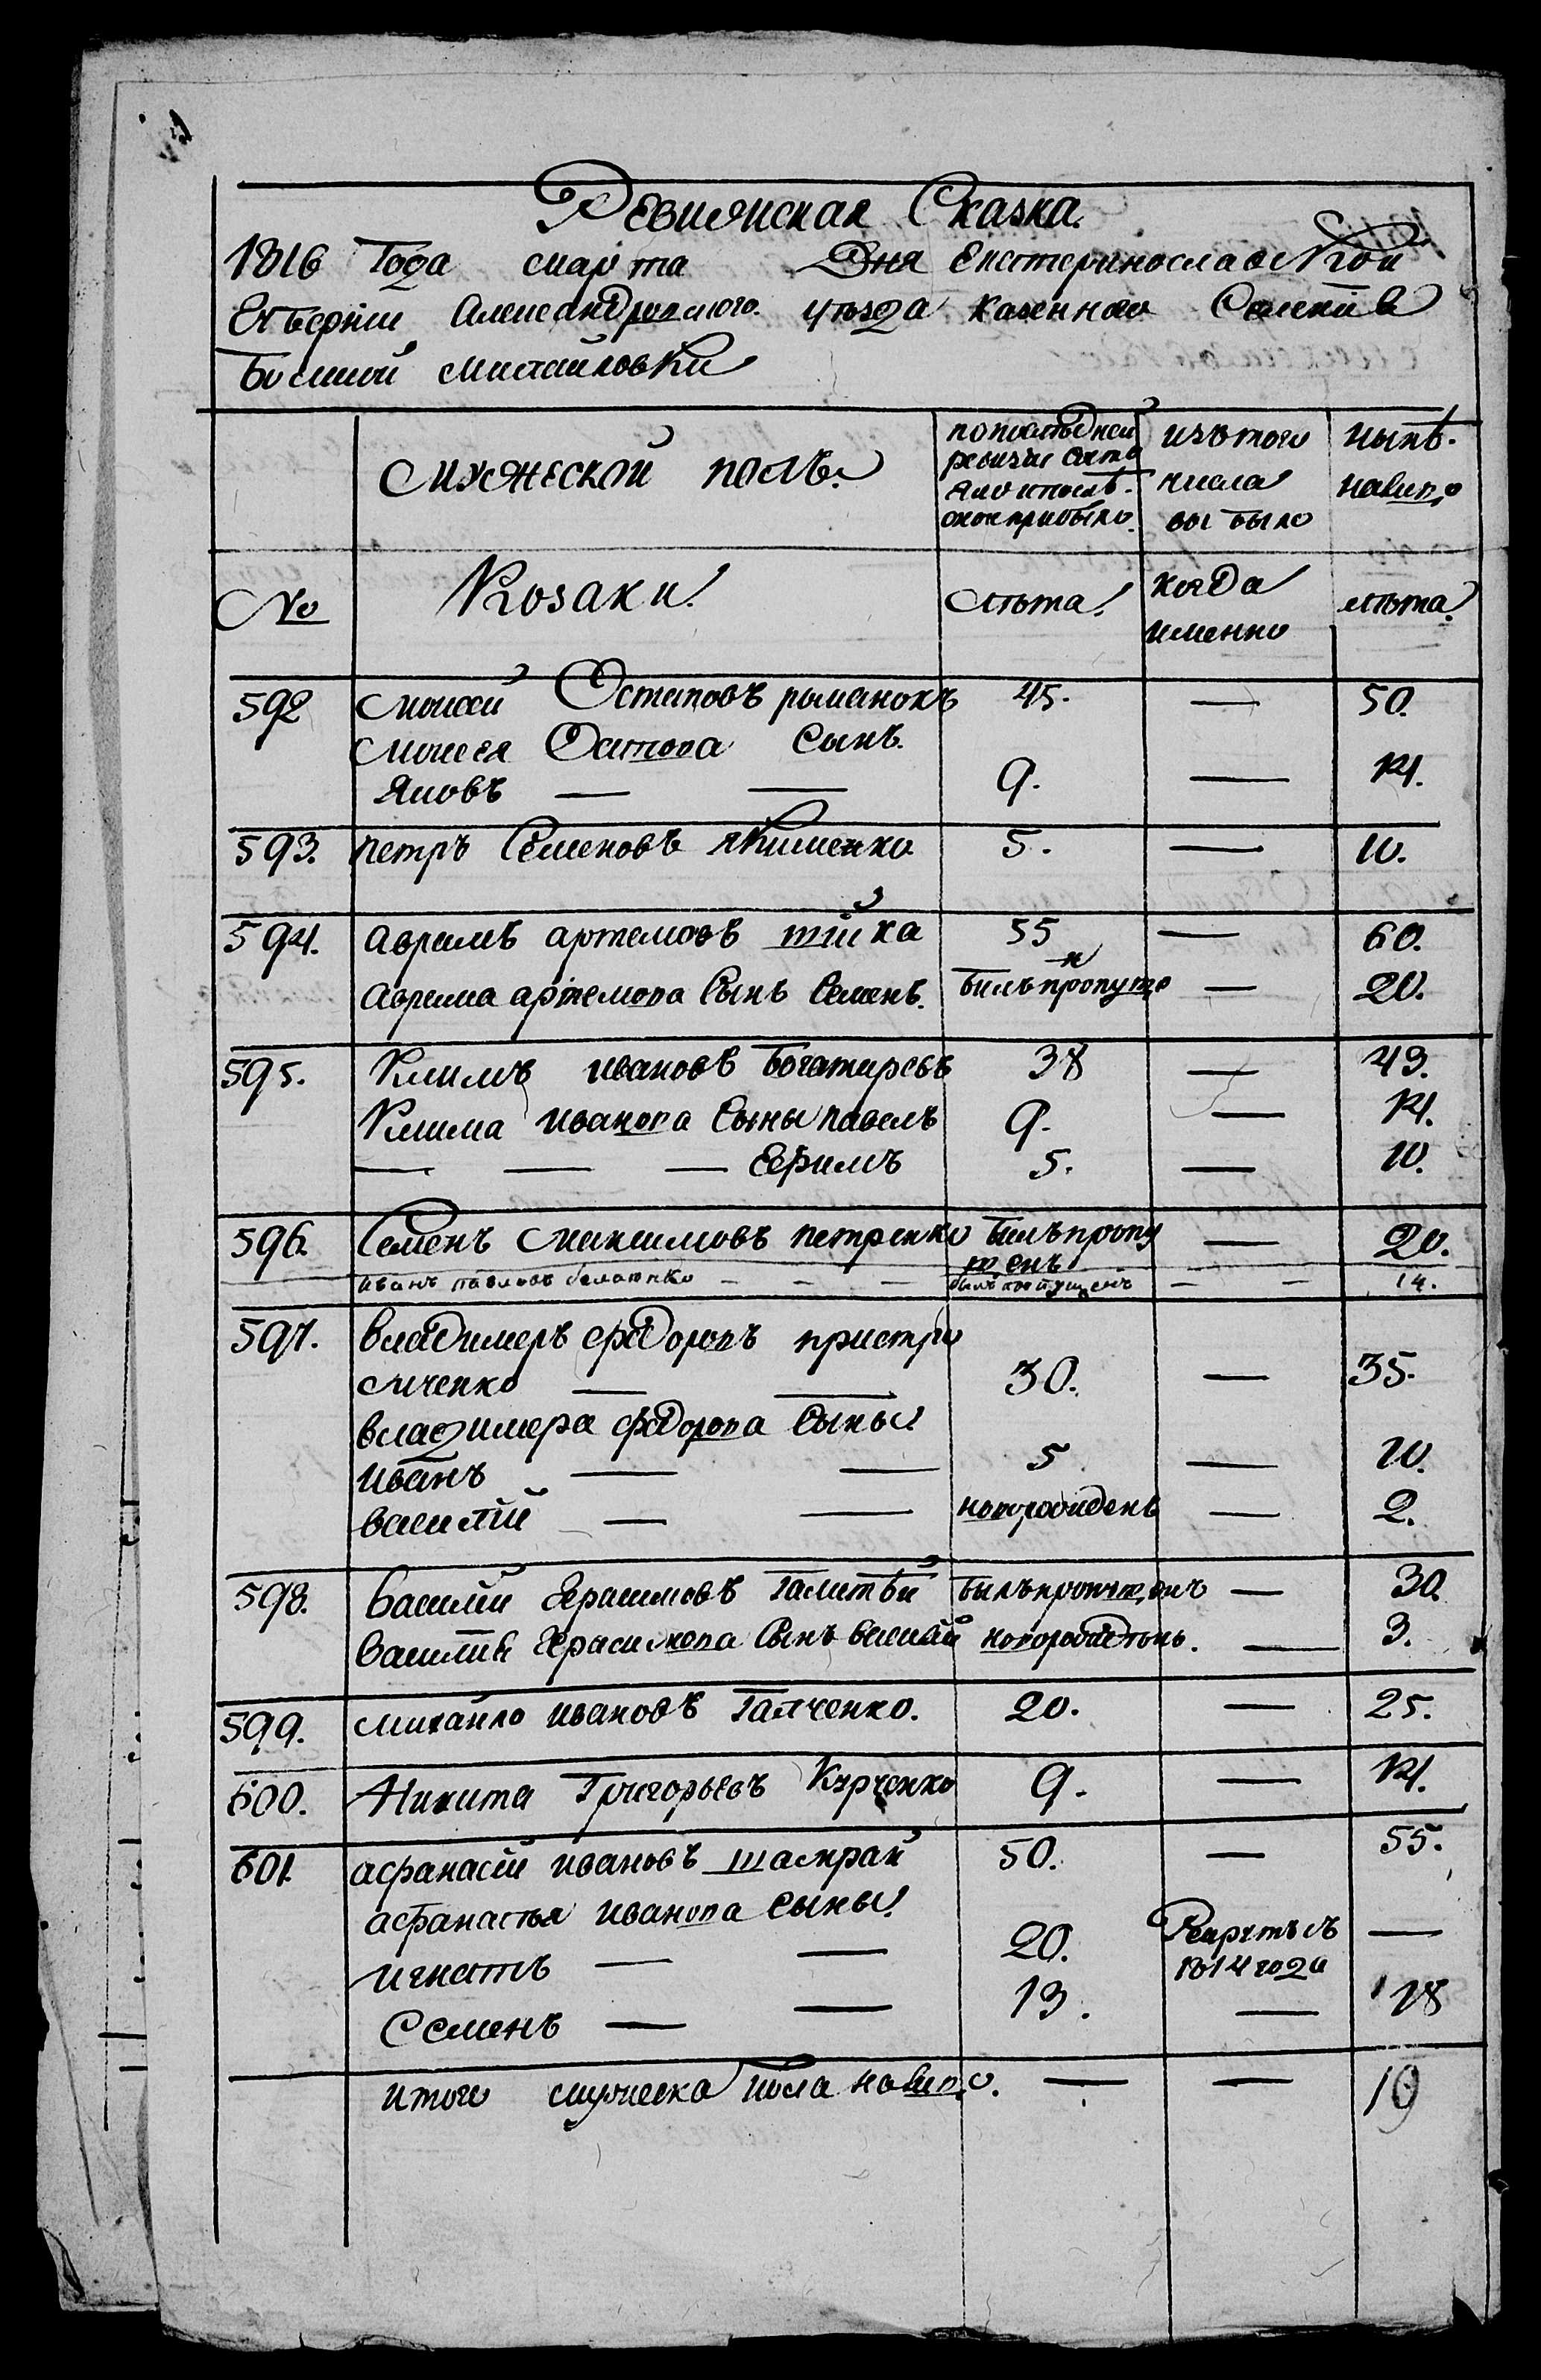 Ревизиская Сказка
1816 года марта Дня Екатеринославской
Губернии Александровского уезда казенного Селенiя
Большой Михайловки
Мужеской полъ.
по последней ревизiи состояло и после оной прибыло
изъ того числа выбыло
ныне налицо
№ Козаки. Лѣта. когда именно лѣта
592 Моисей Остаповъ романокъ 45. — 50.
Моисея Остапова Сынъ.
Яковъ — — 9. — 14.
593. петръ Семеновъ якименко 5. — 10.
594. Аврамъ артемовъ шiйка 55 — 60.
Аврама артемова Сынъ Семенъ. билъ пропущен — 20.
595. Климъ ивановъ Богатиревъ 38 — 43.
Клима иванова Сыны павелъ 9. — 14.
— — — Ефимъ 5. — 10.
596. Семенъ Максимовъ петренко билъ пропущенъ — 20.
иванъ павловъ — — — былъ пропущенъ — — 14.
597. владимеръ федоровъ пристромченко — — 30. — 35.
владимера федорова Сыны
иванъ — — 5 — 10.
василiй — — новорожденъ — 2.
598. Василiй Герасимовъ билъ пропущенъ — 30.
Василiя Герасимова Сынъ василiй новорожденъ. — 3.
599. михайло ивановъ Галченко. 20. — 25.
600. Никита Григорьевъ Курченко 9. — 14.
601. афанасiй ивановъ шамрай 50. — 55.
афанасья иванова Сыны
игнатъ — — 20. Рекрутъ съ 1814 года —
Семенъ — — 13. — 18
итого мужеска пола налицо. — — 19